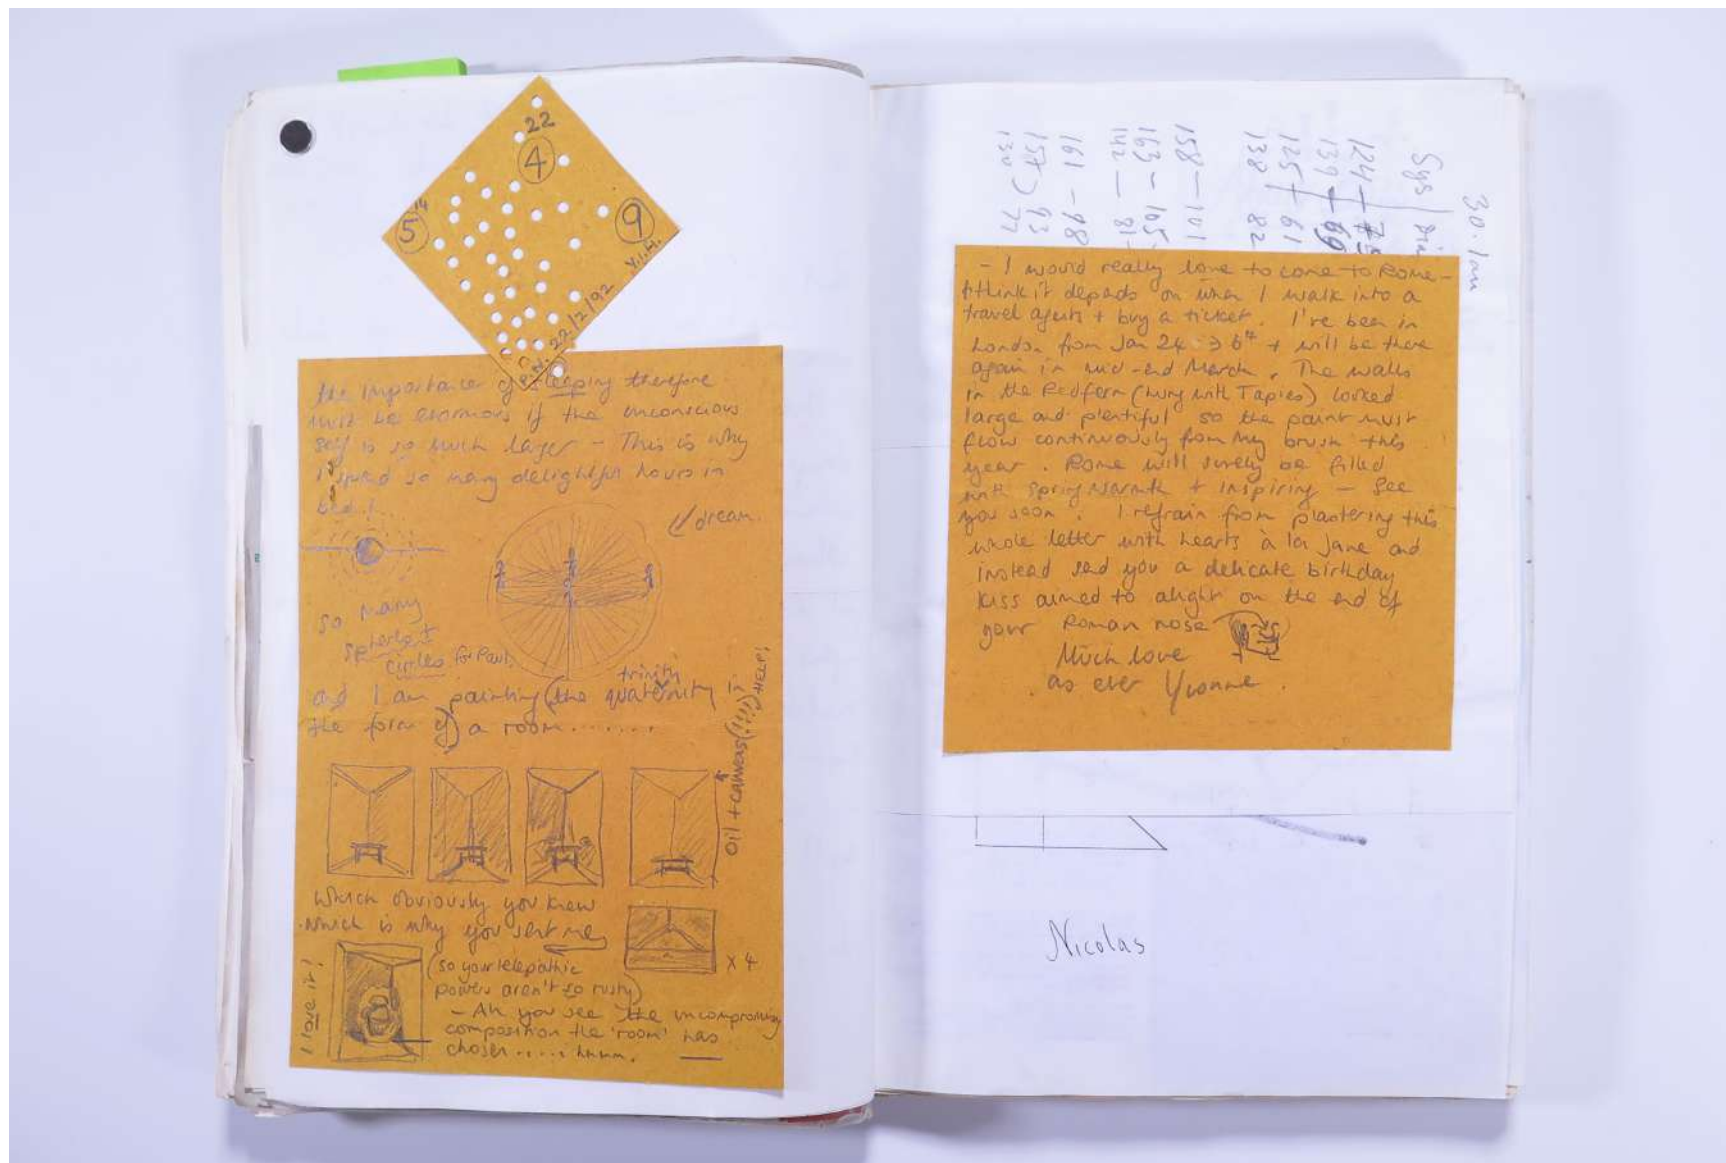 22
4
14
5
9
Y.I.H.
P.N. 22/2/92
the importance of sleeping therefore
must be enormous if the unconscious
self is so much larger – This is why
I spend so many delightful hours in
bed!
dream.
so many
spheres +
circles for Paul.
trinity
and I am painting (the quaternity in
the form of) a room.......
Oil + canvas (iiii) HELP!
Which obviously you knew
which is why you sent me
x 4
I love it!
(so your telepathic
powers aren't so rusty)
– Ah you see the uncompromising
composition the 'room' has
chosen..... hmmm.
30. Jan
Sys / Dia
124 – 75
139 – 69
125 – 61
138 82
158 – 101
163 – 105
142 – 81
161 – 98
157 93
130 77
– I would really love to come to Rome –
I think it depends on when I walk into a
travel agents + buy a ticket. I've been in
London from Jan 24 → 6th + will be there
again in mid-end March. The walls
in the Redfern (hung with Tapies) looked
large and plentiful so the paint must
flow continuously from my brush this
year. Rome will surely be filled
with spring warmth + inspiring – See
you soon. I refrain from plastering this
whole letter with hearts a la Jane and
instead send you a delicate birthday
kiss aimed to alight on the end of
your Roman nose
Much love
as ever Yvonne.
Nicolas